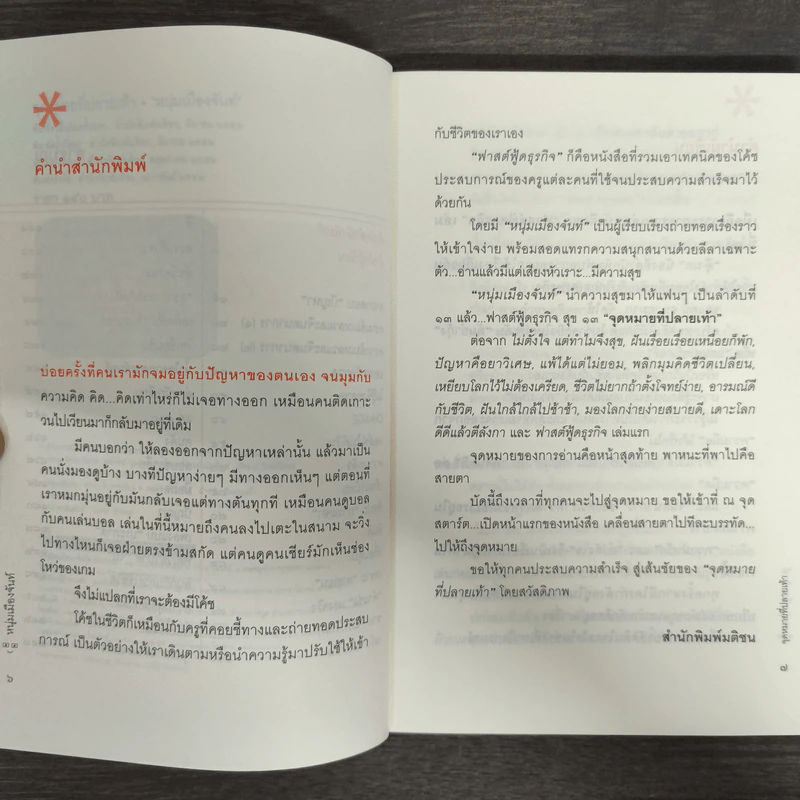 คำนำสำนักพิมพ์
บ่อยครั้งที่คนเรามักจมอยู่กับปัญหาของตนเอง จนมุมกับ
ความคิด คิด...คิดเท่าไหร่ก็ไม่เจอทางออก เหมือนคนติดเกาะ
วนไปเวียนมาก็กลับมาอยู่ที่เดิม
มีคนบอกว่า ให้ลองออกจากปัญหาเหล่านั้น แล้วมาเป็น
คนนั่งมองดูบ้าง บางทีปัญหาง่ายๆ มีทางออกเห็นๆ แต่ตอนที่
เราหมกมุ่นอยู่กับมันกลับเจอแต่ทางตันทุกที เหมือนคนดูบอล
กับคนเล่นบอล เล่นในที่นี้หมายถึงคนลงไปเตะในสนาม จะวิ่ง
ไปทางไหนก็เจอฝ่ายตรงข้ามสกัด แต่คนดูคนเชียร์มักเห็นช่อง
โหว่ของเกม
จึงไม่แปลกที่เราจะต้องมีโค้ช
โค้ชในชีวิตก็เหมือนกับครูที่คอยชี้ทางและถ่ายทอดประสบ
การณ์ เป็นตัวอย่างให้เราเดินตามหรือนำความรู้มาปรับใช้ให้เข้า
หนุ่มเมืองจันท์
๖
กับชีวิตของเราเอง
"ฟาสต์ฟู้ดธุรกิจ" ก็คือหนังสือที่รวมเอาเทคนิคของโค้ช
ประสบการณ์ของครูแต่ละคนที่ใช้จนประสบความสำเร็จมาไว้
ด้วยกัน
โดยมี "หนุ่มเมืองจันท์" เป็นผู้เรียบเรียงถ่ายทอดเรื่องราว
ให้เข้าใจง่าย พร้อมสอดแทรกความสนุกสนานด้วยลีลาเฉพาะ
ตัว...อ่านแล้วมีแต่เสียงหัวเราะ...มีความสุข
"หนุ่มเมืองจันท์" นำความสุขมาให้แฟนๆ เป็นลำดับที่
๑๓ แล้ว..ฟาสต์ฟู้ดธุรกิจ สุข ๑๓ "จุดหมายที่ปลายเท้า"
ต่อจาก ไม่ตั้งใจ แต่ทำไมจึงสุข, ฝันเรื่อยเรื่อยเหนื่อยก็พัก,
ปัญหาคือยาวิเศษ, แพ้ได้แต่ไม่ยอม, พลิกมุมคิดชีวิตเปลี่ยน,
เหยียบโลกไว้ไม่ต้องเครียด, ชีวิตไม่ยากถ้าตั้งโจทย์ง่าย, อารมณ์ดี
กับชีวิต, ฝันใกล้ใกล้ไปช้าช้า, มองโลกง่ายง่ายสบายดี, เดาะโลก
ดีดีแล้วตีลังกา และ ฟาสต์ฟู้ดธุรกิจ เล่มแรก
จุดหมายของการอ่านคือหน้าสุดท้าย พาหนะที่พาไปคือ
สายตา
บัดนี้ถึงเวลาที่ทุกคนจะไปสู่จุดหมาย ขอให้เข้าที่ ณ จุด
สตาร์ต...เปิดหน้าแรกของหนังสือ เคลื่อนสายตาไปทีละบรรทัด...
ไปให้ถึงจุดหมาย
ขอให้ทุกคนประสบความสำเร็จ สู่เส้นชัยของ "จุดหมาย
ที่ปลายเท้า" โดยสวัสดิภาพ
สำนักพิมพ์มติชน
จุดหมายที่ปลายเท้า
๗